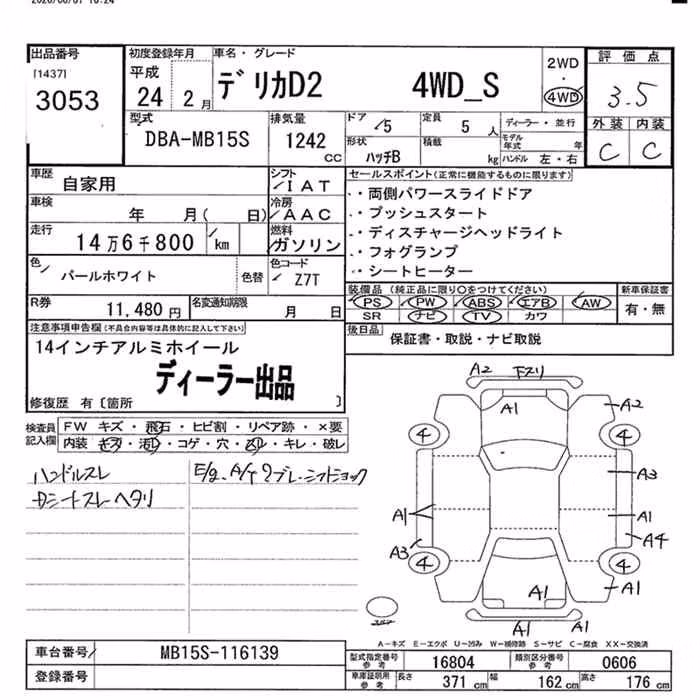 出品番号
[1437]
3053
初度登録年月
平成
24 2月
車名・グレード
デリカD2 4WD_S
2WD
・
4WD
評価点
3.5
外装 内装
C C
型式
DBA-MB15S
排気量
1242
CC
ドア
5
定員
5 人
ディーラー・並行
形状
ハッチB
積載
kg
モデル年式 年
ハンドル 左・右
車歴
自家用
シフト
IAT
車検
年 月( 日)
冷房
AAC
走行
14万6千800 km
燃料
ガソリン
色
パールホワイト
色替
色コード
Z7T
R券
11,480円
名変通知期限
月 日
セールスポイント(正常に機能するものに限ります)
・両側パワースライドドア
・プッシュスタート
・ディスチャージヘッドライト
・フォグランプ
・シートヒーター
装備品 (純正品に限り○をつけてください)
PS PW ABS エアB AW
SR ナビ TV カワ
新車保証書
有・無
後日品
保証書・取説・ナビ取説
注意事項申告欄(不具合内容等は具体的に記入して下さい)
14インチアルミホイール
ディーラー出品
修復歴 有〔箇所 〕
検査員記入欄
FW キズ・飛石・ヒビ割・リペア跡・×要
内装 キズ・汚レ・コゲ・穴・スレ・キレ・破レ
ハンドルスレ
Dシートスレヘタリ
E/g、A/Tクブレ・シフトショック
A2 下スリ
A1
A2
4 4
A3
A1 A1
A3 A4
4 4
A1 A1
A1 A1
A-キズ E-エクボ U-凹み W-補修跡 S-サビ C-腐食 XX-交換済
車台番号
MB15S-116139
登録番号
型式指定番号 参考
16804
類別区分番号 参考
0606
車庫証明用 参考
長さ 371 cm
幅 162 cm
高さ 176 cm